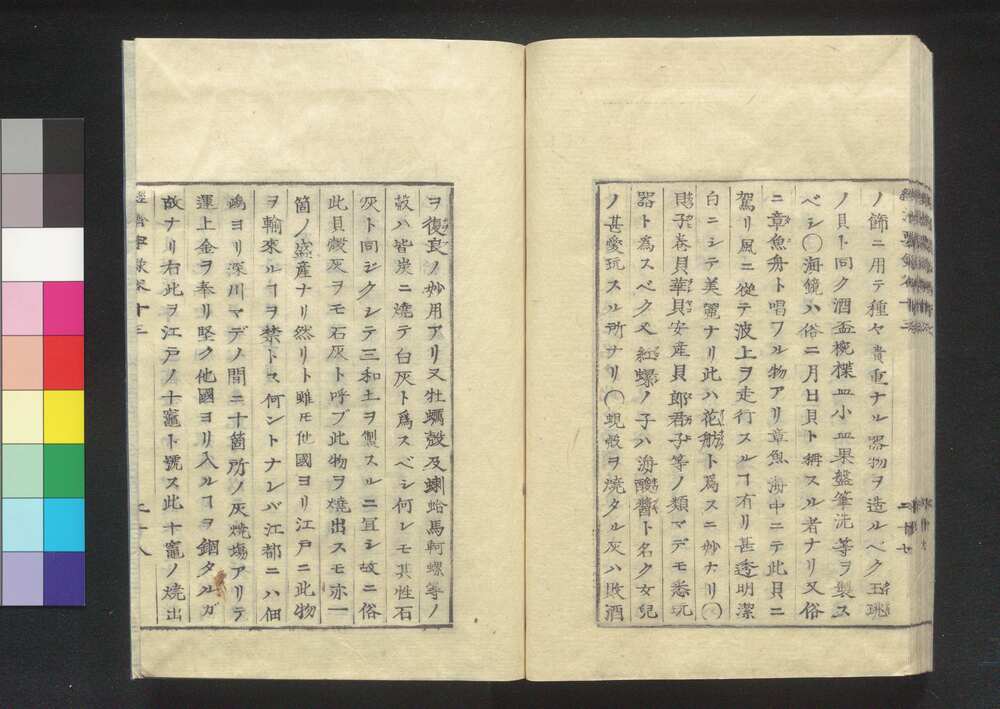 ノ飾ニ用テ種々貴重ナル器物ヲ造ルベク玉珧
ノ貝ト同ク酒盃椀楪皿小皿果盤筆洗等ヲ製ス
ベシ〇海鏡ハ俗ニ月日貝ト稱スル者ナリ又俗
ニ章魚舟ト唱フル物アリ章魚海中ニテ此貝ニ
駕リ風ニ從テ波上ヲ走行スルヿ有リ甚透明潔
白ニシテ美麗ナリ此ハ花舩ト爲スニ妙ナリ〇
貝子卷貝華貝安産貝郎君子等ノ類マデモ悉玩
器ト為スベク又紅螺ノ子ハ海醶醬ト名ク女兒
ノ甚愛玩スル所ナリ〇蜆殻ヲ焼タル灰ハ敗酒
二十七
ヲ復良ノ妙用アリ又牡蠣殻及蝲蛤馬軻螺等ノ
殻ハ皆炭ニ燒テ白灰ト爲スベシ何レモ其性石
灰ト同ジクシテ三和土ヲ製スルニ宜シ故ニ俗
此貝殻灰ヲモ石灰ト呼ブ此物ヲ燒出スモ亦一
箇ノ盛産ナリ然リト雖モ他國ヨリ江戸ニ此物
ヲ輸來ルヿヲ禁トス何ントナレバ江都ニハ佃
嶋ヨリ深川マデノ間ニ十箇所ノ灰焼場アリテ
運上金ヲ奉リ堅ク他國ヨリ入ルヿヲ錮タルガ
故ナリ右此ヲ江戸ノ十竈ト號ス此十竈ノ燒出
二十八